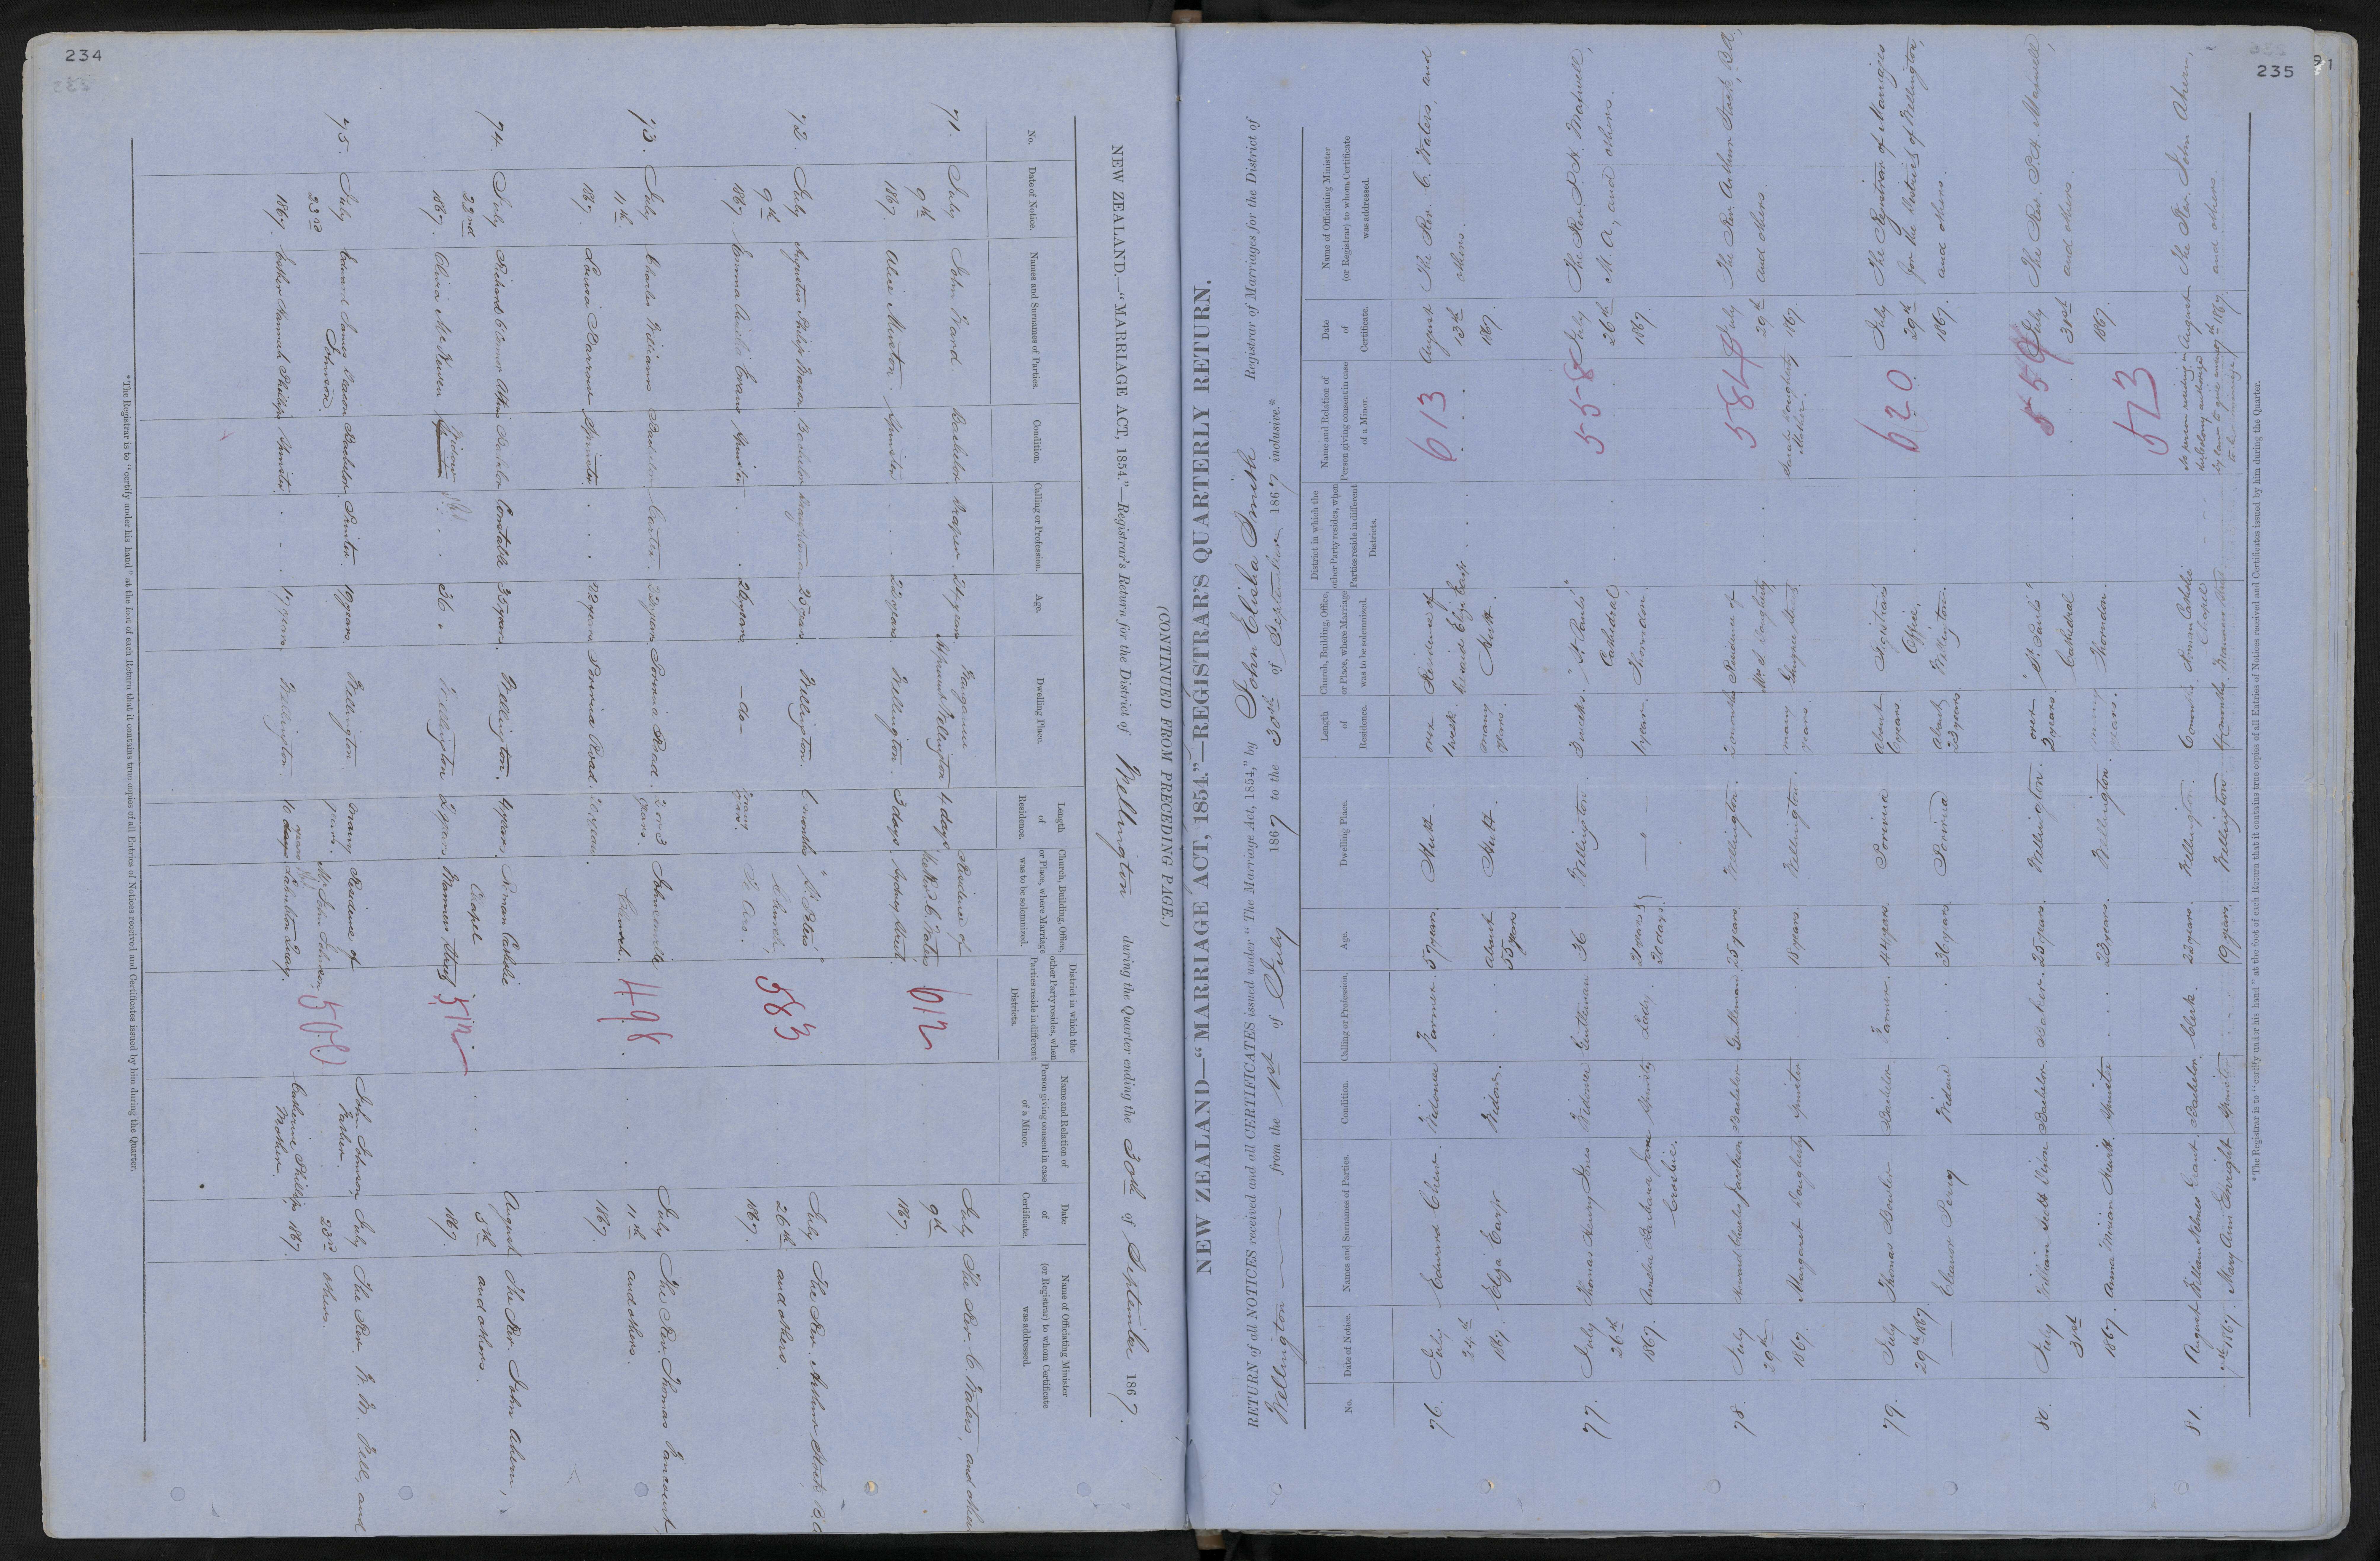 234
NEW ZEALAND.—"MARRIAGE ACT, 1854."—Registrar's Return for the District of Wellington during the Quarter ending the 30th of September 1867.
(CONTINUED FROM PRECEDING PAGE.)
No.
Date of Notice.
Names and Surnames of Parties.
Condition.
Calling or Profession.
Age.
Dwelling Place.
Length of Residence.
Church, Building, Office, or Place, where Marriage was to be solemnized.
District in which the other Party resides, when Parties reside in different Districts.
Name and Relation of Person giving consent in case of a Minor.
Date of Certificate.
Name of Officiating Minister (or Registrar) to whom Certificate was addressed.
71. July 9th 1867.
John Ward. Bachelor. Draper. 24 years Wellington 4 days
Alice Minton. Spinster 22 years. Wellington. 3 days
Residence of the Revd. C. Waters, Sydney Street.
612
July 9th 1867.
The Rev. C. Waters, and others
72. July 9th 1867.
Augustus Philip Mason. Bachelor 25 years. Wellington. 6 months
Emma Evans Spinster 20 years -do- many years.
"St Peter's" Church, Te Aro.
583
July 26th 1867.
The Rev. Arthur Stock B.A. and others.
73. July 11th 1867.
Charles William Bachelor Carter. 22 years Porirua Road. 2 or 3 years.
Louisa Spinster 22 years Porirua Road. 20 years.
Johnsonville Church.
498
July 11th 1867.
The Rev. Thomas and others.
74. July 22nd 1867.
Richard Bachelor Constable 35 years. Wellington. 4 years.
Olivia McKewen Widow 36 Wellington 2 years.
Roman Catholic Chapel Manners Street
512
August 5th 1867.
The Rev. John Ahern, and others.
75. July 23rd 1867.
Edward James Deacon Johnson. Bachelor. Printer. 19 years. Wellington. many years.
Esther Hannah Phillips Spinster. 17 years. Wellington. 10 years
Residence of Mr John Johnson, Lambton Quay.
500
John Johnson Father.
Catherine Phillips Mother.
July 23rd 1867.
The Rev. and others.
*The Registrar is to "certify under his hand" at the foot of each Return that it contains true copies of all Entries of Notices received and Certificates issued by him during the Quarter.
235
NEW ZEALAND—"MARRIAGE ACT, 1854."—REGISTRAR'S QUARTERLY RETURN.
RETURN of all NOTICES received and all CERTIFICATES issued under "The Marriage Act, 1854," by John Elisha Smith Registrar of Marriages for the District of
Wellington from the 1st of July 1867 to the 30th of September 1867 inclusive.*
No.
Date of Notice.
Names and Surnames of Parties.
Condition.
Calling or Profession.
Age.
Dwelling Place.
Length of Residence.
Church, Building, Office, or Place, where Marriage was to be solemnized.
District in which the other Party resides, when Parties reside in different Districts.
Name and Relation of Person giving consent in case of a Minor.
Date of Certificate.
Name of Officiating Minister (or Registrar) to whom Certificate was addressed.
76. July 24th 1867.
Edward Chew. Widower Farmer. 57 years. Hutt. one week
Eliza Earp Widow. about 55 years Hutt. many years.
Residence of Eliza Earp Hutt.
613
August 13th 1867.
The Rev. C. Waters, and others.
77. July 26th 1867.
Thomas Henry Jones. Widower Gentleman 36 Wellington. 3 weeks.
Amelia Barbara Jane Spinster Lady. 21 years 20 days. 1 year.
"St Paul's" Cathedral Thorndon.
558
July 26th 1867.
The Rev. P. H. Maxwell, M.A., and others.
78. July 29th 1867.
Edward Charles Jackson Bachelor Gentleman 25 years Wellington. 2 months
Margaret Dougherty Spinster 18 years. Wellington. many years.
Residence of Mrs S. Dougherty
584
Sarah Dougherty Mother.
July 29th 1867.
The Rev. Arthur Stock, B.A., and others.
79. July 29th 1867.
Thomas Bowler Bachelor Farmer. 44 years Porirua About 6 years
Eleanor Widow 36 years. Porirua About 23 years
Registrar's Office, Wellington.
620
July 29th 1867.
The Registrar of Marriages for the District of Wellington, and others.
80. July 31st 1867.
William Scott Bachelor. Baker. 25 years. Wellington. over 2 years.
Anna Miriam Spinster 23 years. Wellington. many years.
"St Paul's" Cathedral Thorndon.
559
July 31st 1867.
The Rev. P. H. Maxwell, and others.
81. August 7th 1867.
William Grant. Bachelor Clerk. 22 years. Wellington. 6 months.
Mary Ann Enright Spinster 19 years. Wellington 4 months.
Roman Catholic Chapel Manners Street
573
No person residing in Wellington authorized by law to give consent to the marriage.
August 7th 1867.
The Rev. John Ahern, and others.
*The Registrar is to "certify under his hand" at the foot of each Return that it contains true copies of all Entries of Notices received and Certificates issued by him during the Quarter.